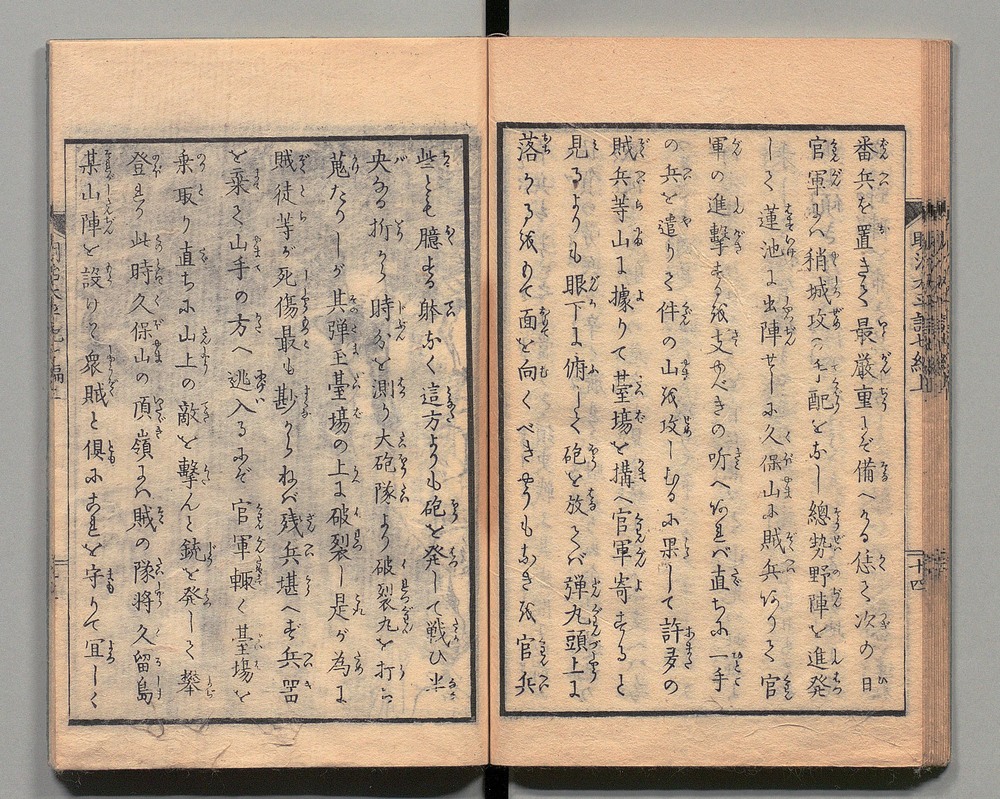 番兵を置きて最厳重にぞ備へける恁て次の日
官軍にハ稍城攻の手配をなし總勢野陣を進発
して蓮池に出陣せしに久保山に賊兵ありて官
軍の進撃するを支ゆべきの听へあれバ直ちに一手
の兵を遣りて件の山を攻しむるに果して許多の
賊兵等山に據りて䑓場を搆へ官軍寄すると
見るよりも眼下に俯して砲を放てバ弾丸頭上に
落かゝるをもて面を向くべきやうもなきを官兵
些とも臆する躰なく這方よりも砲を発して戦ひ半
央なる折から時分を測り大砲隊より破裂丸を打
蒐たりしが其弾玉䑓場の上に破裂し是が為に
賊徒等が死傷最も尠からねバ残兵堪へず兵器
を棄て山手の方へ逃入るにぞ官軍輙く䑓場を
乗取り直ちに山上の敵を撃んと銃を発して攀
登れり此時久保山の頂嶺にハ賊の隊将久留島
某山陣を設けて衆賊と倶にこれを守りて宜しく
十四